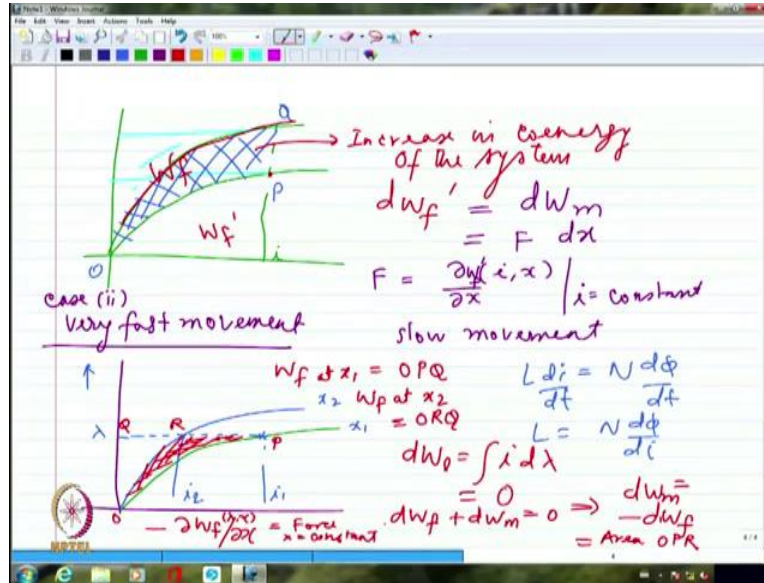 Note1 - Windows Journal
File Edit View Insert Actions Tools Help
100%
Q
Wf
P
Wf'
i
O
Increase in coenergy
of the system
dWf' = dWm
= F dx
F = ∂Wf'(i,x)/∂x | i = constant
case (ii)
very fast movement
slow movement
Wf at x1 = OPQ
x2 Wf at x2
= ORQ
x1
λ
Q
R
P
i2
i1
O
L di/dt = N dφ/dt
L = N dφ/di
dWe = ∫ i dλ
= 0
dWf + dWm = 0 ⇒ dWm =
-dWf
= Area OPR
- ∂Wf(λ,x)/∂x = Force
λ = constant
NPTEL
4/4